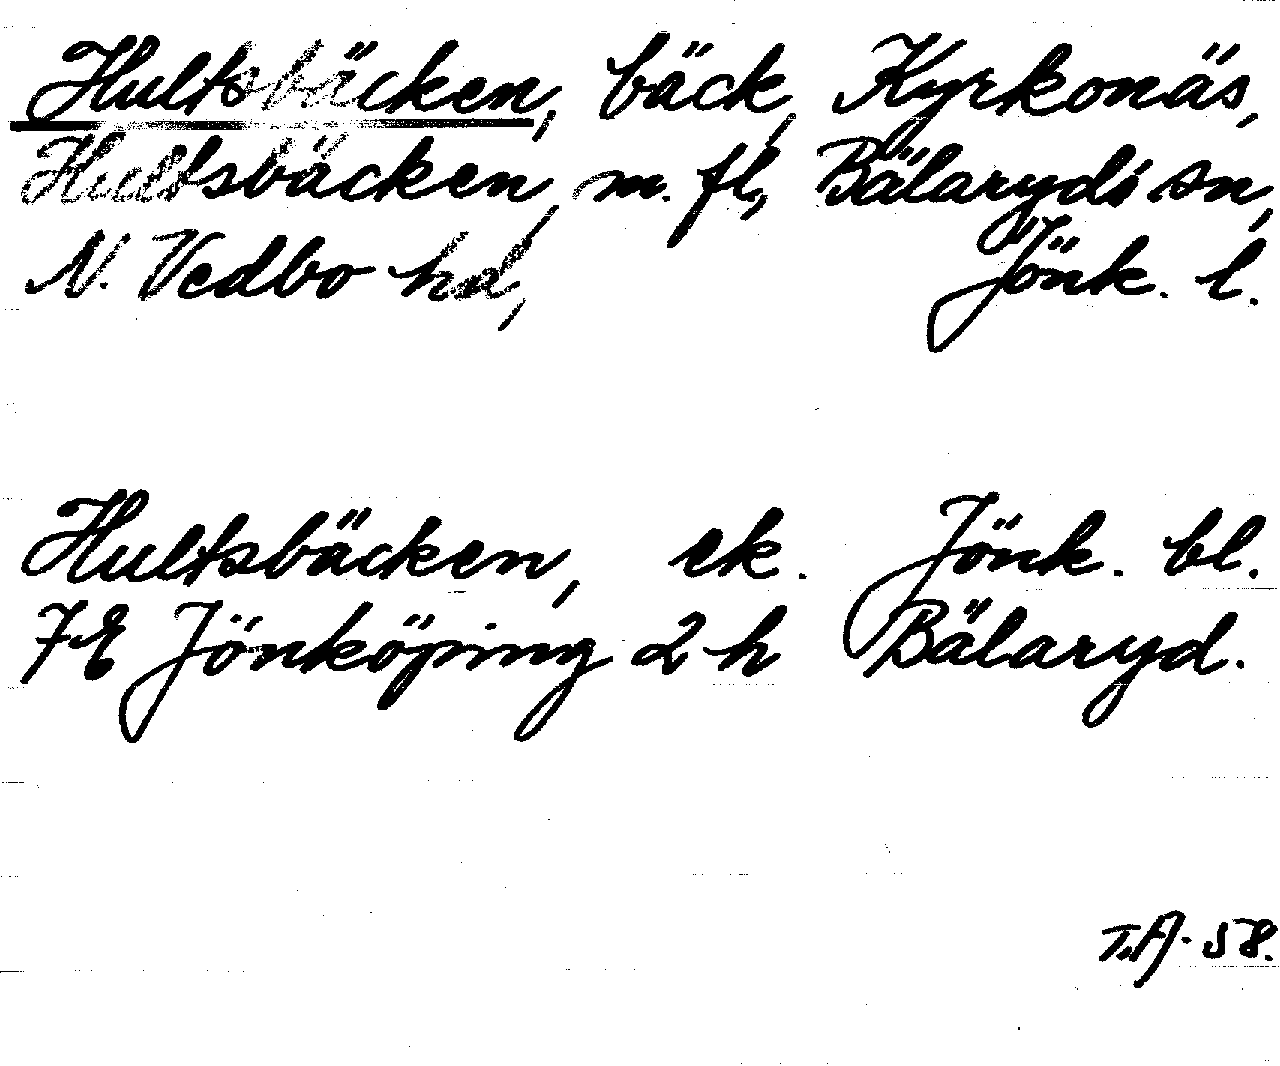 Hultsbäcken, bäck, Kyrkonäs,
Hultsbäcken, m. fl., Bälaryds sn,
N. Vedbo hd, Jönk. l.
Hultsbäcken, ek. Jönk. bl.
7E Jönköping 2 h Bälaryd.
T.A. 58.